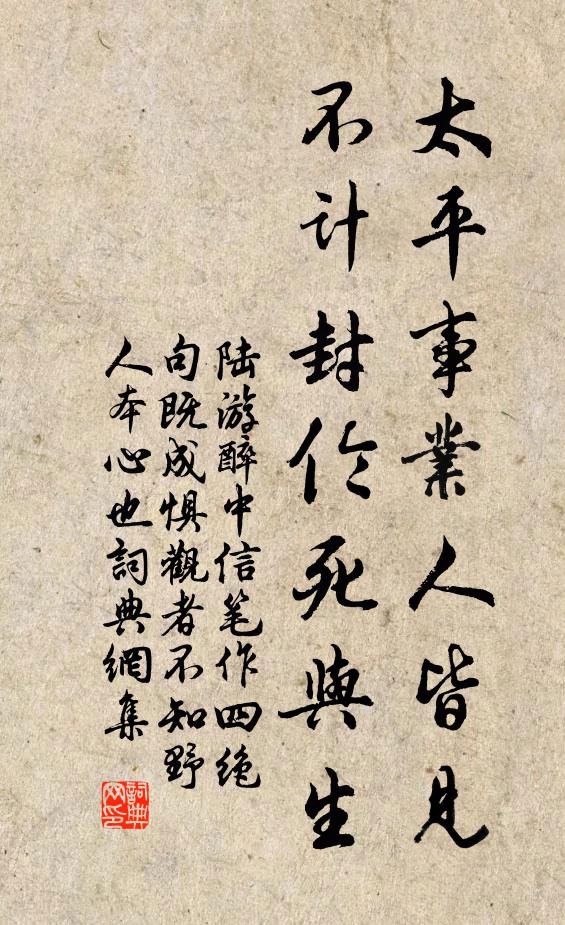 太平事業人皆見
不計封伦死與生
陆游醉中信笔作四绝
句既成惧觀者不知野
人本心也詞典網集
詞典网印